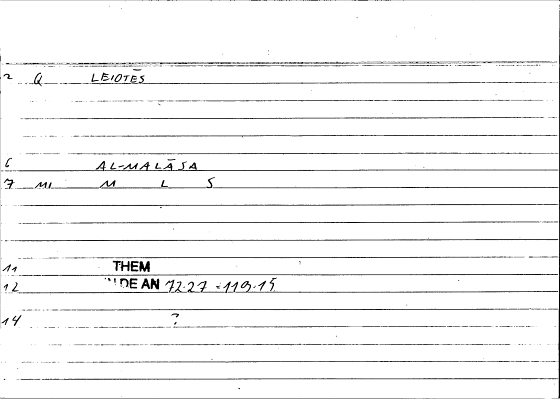 2 Q LEIOTĒS
6 AL-MALĀSA
7 MI M L S
11 THEM
12 DE AN 72.27 - 119.15
14 ?